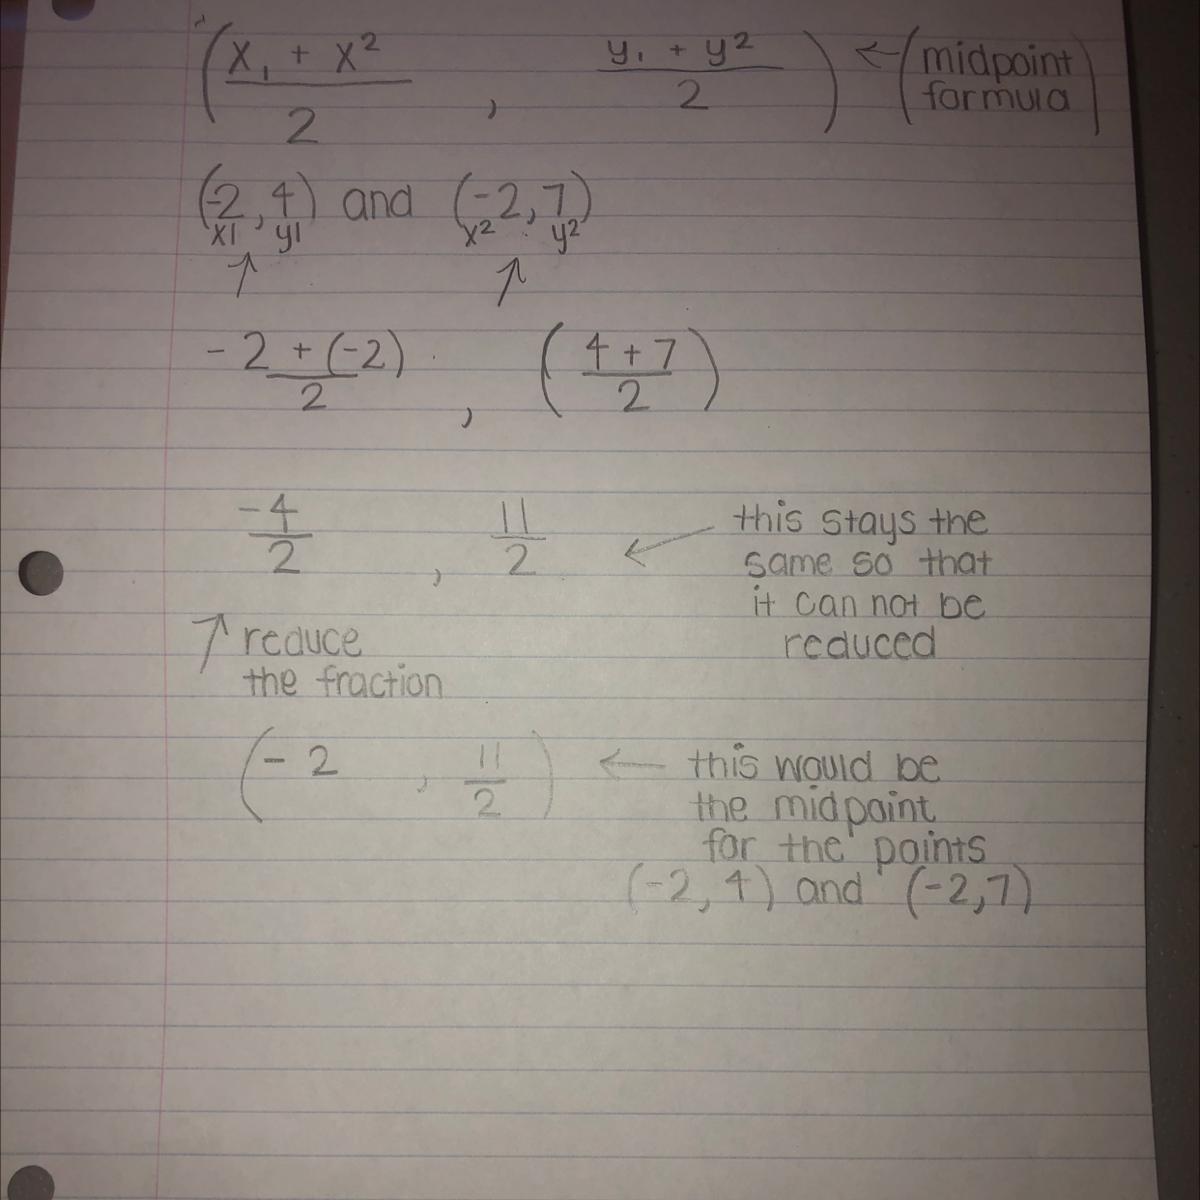 (x₁ + x² / 2 , y₁ + y² / 2) ← (midpoint formula)
(-2, 4) and (-2, 7)
x1 y1 x² y²
↑ ↑
-2 + (-2) / 2 , (4 + 7 / 2)
-4 / 2 , 11 / 2 ← this stays the
same so that
it can not be
reduced
↑ reduce
the fraction
(-2 , 11 / 2) ← this would be
the midpoint
for the points
(-2, 4) and (-2,7)